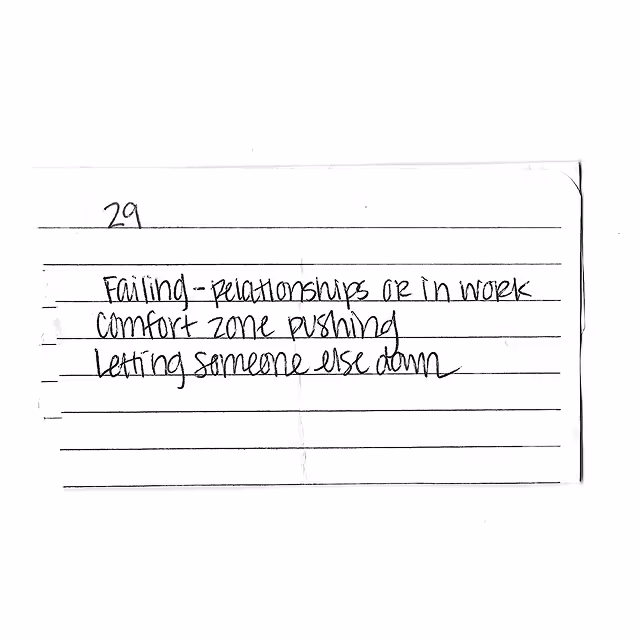 29
Failing - relationships or in work
comfort zone pushing
Letting someone else down